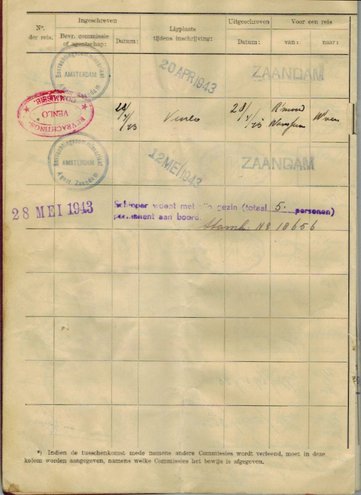 Nr. der reis.
Ingeschreven
Bevr. commissie of agentschap:
Datum:
Ligplaats tijdens inschrijving:
Uitgeschreven
Datum:
Voor een reis
van:
naar:
AMSTERDAM
20 APR 1943
ZAANDAM
BEVRACHTINGS
VENLO
COMMISSIE
Venlo
12 MEI 1943
ZAANDAM
28 MEI 1943
Schipper woont met zijn gezin (totaal 5 personen)
permanent aan boord.
Stamk. No 10656
*) Indien de tusschenkomst mede namens andere Commissies wordt verleend, moet in deze
kolom worden aangegeven, namens welke Commissies het bewijs is afgegeven.